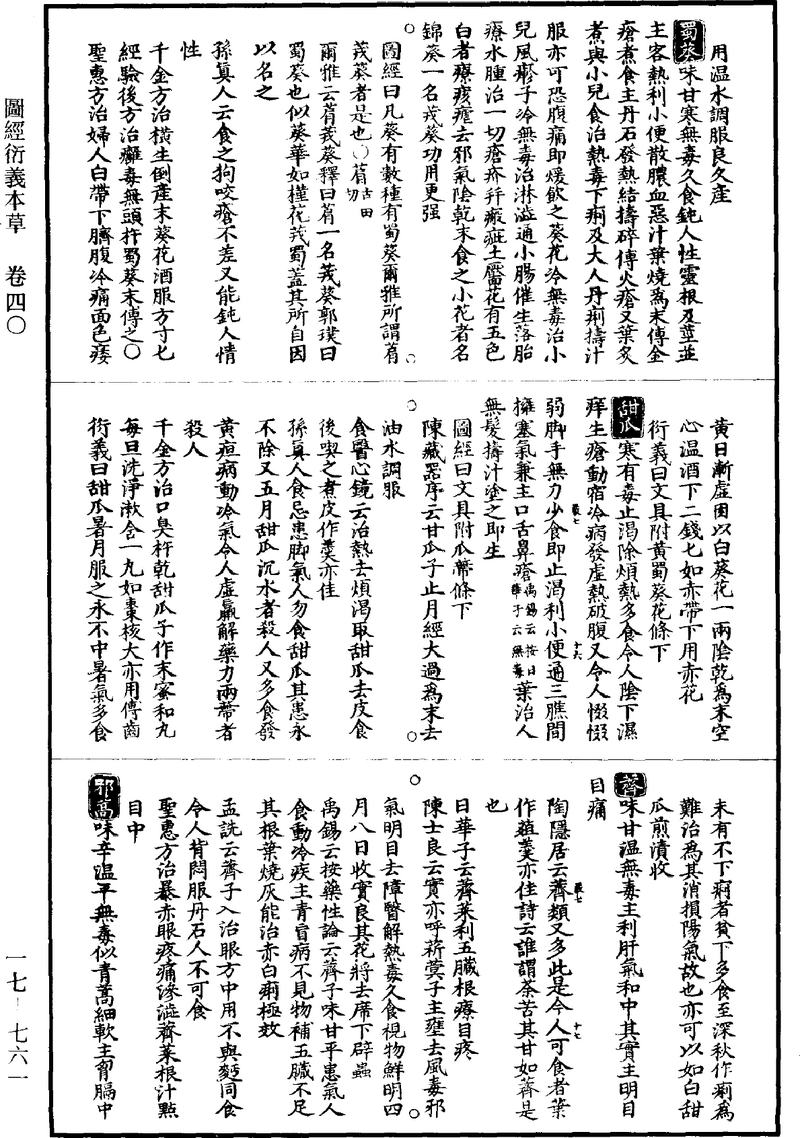 圖經衍義本草　卷四〇
一七－七六一
用温水調服良久產
蜀葵味甘寒無毒久食鈍人性靈根及莖並
主客熱利小便散膿血惡汁葉燒為末傅金
瘡煮食主丹石發熱結擣碎傅火瘡又葉炙
煮與小兒食治熱毒下痢及大人丹痢擣汁
服亦可恐腹痛即煖飲之葵花冷無毒治小
兒風癆子冷無毒治淋澁通小腸催生落胎
療水腫治一切瘡疥并瘢疵土靨花有五色
白者療痎瘧去邪氣陰乾末食之小花者名
錦葵一名茙葵功用更强
圖經曰凡葵有數種有蜀葵爾雅所謂菺
茙葵者是也○菺古田切
爾雅云菺茙葵釋曰菺一名茙葵郭璞曰
蜀葵也似葵華如槿花茙蜀蓋其所自因
以名之
孫真人云食之狗咬瘡不差又能鈍人情
性
千金方治橫生倒產末葵花酒服方寸七
經驗後方治癰毒無頭杵蜀葵末傅之○
聖惠方治婦人白帶下臍腹冷痛面色痿
黃日漸虛困以白葵花一兩陰乾為末空
心温酒下二錢七如赤帶下用赤花
衍義曰文具附黃蜀葵花條下
甜瓜寒有毒止渴除煩熱多食令人陰下濕
痒生瘡動宿冷病發虛熱破腹又令人惙惙
弱脚手無力少食即止渴利小便通三膲間
擁塞氣兼主口舌鼻瘡禹錫云按日華子云無毒葉治人
無髮擣汁塗之即生
圖經曰文具附瓜蔕條下
陳藏器序云甘瓜子止月經大過為末去
油水調服
食醫心鏡云治熱去煩渴取甜瓜去皮食
後喫之煮皮作羹亦佳
孫真人食忌患脚氣人勿食甜瓜其患永
不除又五月甜瓜沉水者殺人又多食發
黃疸病動冷氣令人虛羸解藥力兩蔕者
殺人
千金方治口臭杵乾甜瓜子作末蜜和丸
每旦洗淨漱含一丸如棗核大亦用傅齒
衍義曰甜瓜暑月服之永不中暑氣多食
未有不下痢者貧下多食至深秋作痢為
難治為其消損陽氣故也亦可以如白甜
瓜煎漬收
薺味甘温無毒主利肝氣和中其實主明目
目痛
陶隱居云薺類又多此是今人可食者葉
作葅羹亦佳詩云誰謂荼苦其甘如薺是
也
日華子云薺菜利五臟根療目疼
陳士良云實亦呼菥蓂子主壅去風毒邪
氣明目去障瞖解熱毒久食視物鮮明四
月八日收實良其花將去席下辟蟲
禹錫云按藥性論云薺子味甘平患氣人
食動冷疾主青盲病不見物補五臟不足
其根葉燒灰能治赤白痢極效
孟詵云薺子入治眼方中用不與麪同食
令人背悶服丹石人不可食
聖惠方治暴赤眼疼痛滲澁薺菜根汁點
目中
邪蒿味辛温平無毒似青蒿細軟主胷膈中